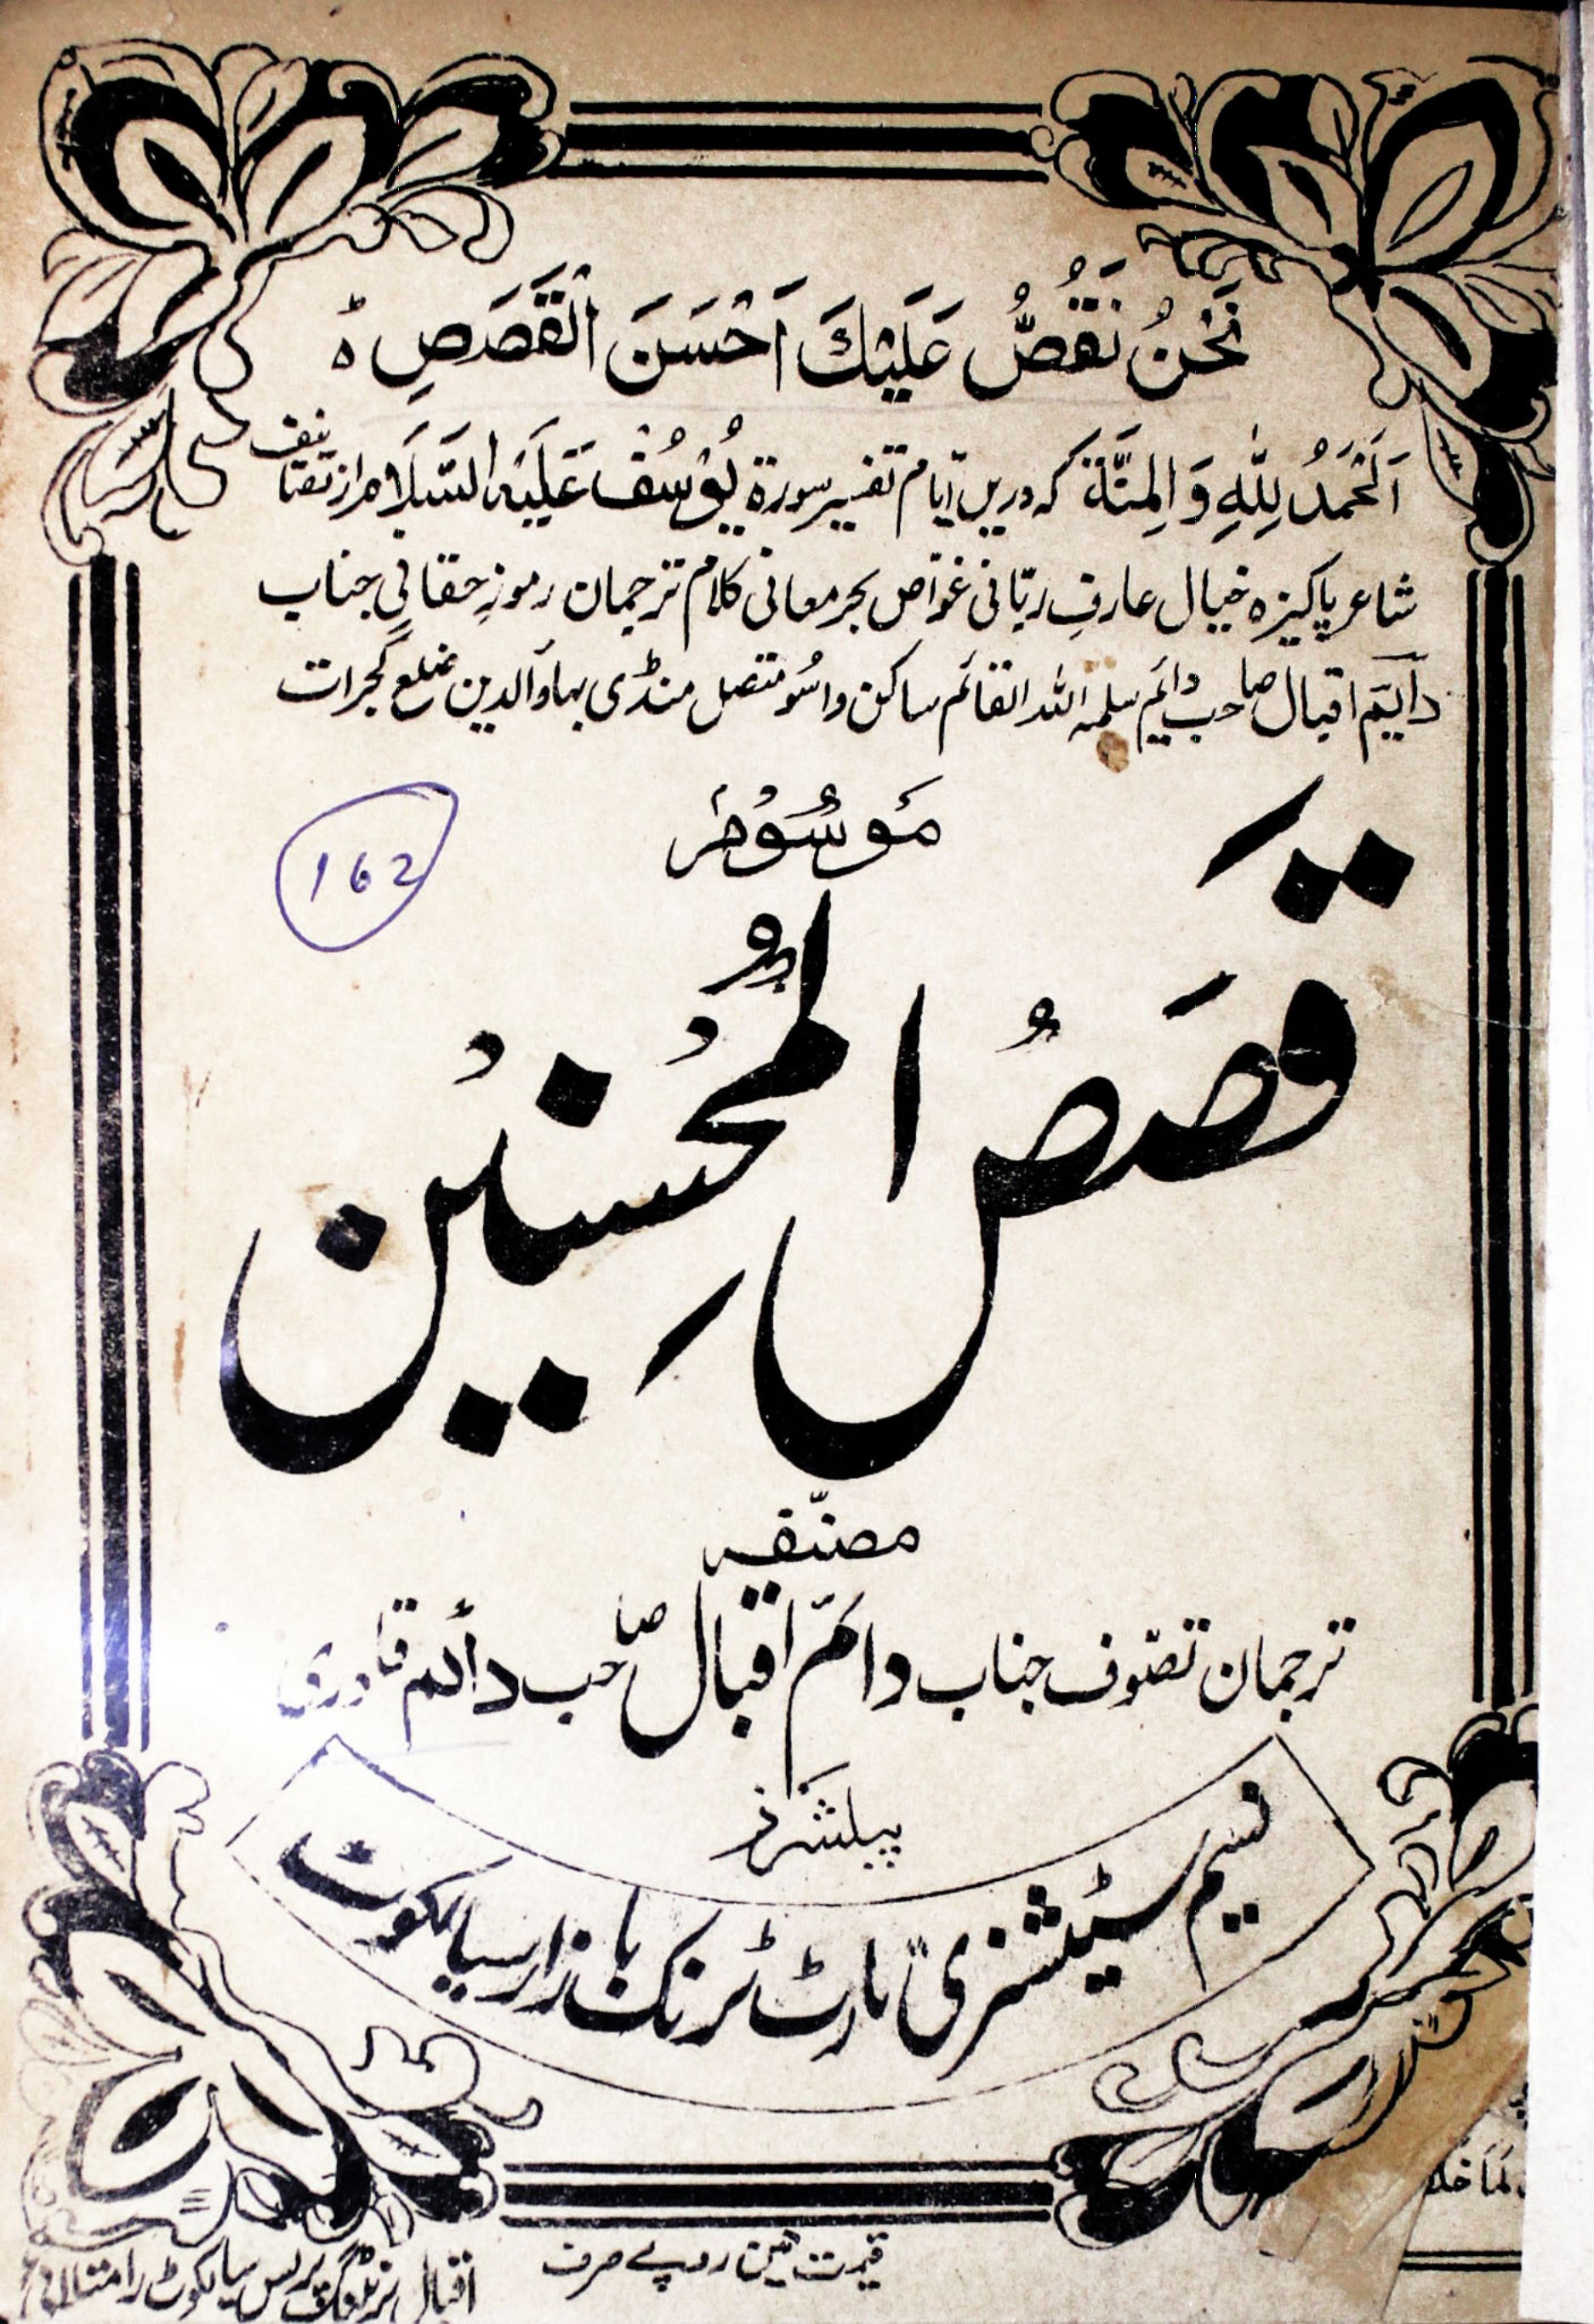 نَحْنُ نَقُصُّ عَلَيْكَ اَحْسَنَ الْقَصَصِ ہ
اَلْحَمْدُ لِلّٰهِ وَ الِمنَّة کہ دریں ایّام تفسیر سورۃ یُوْسُفْ عَلَیْہِ السَّلَام از تصانیف
شاعر پاکیزہ خیال عارفِ ربّانی غوّاص بحر معانی کلام ترجمان رموزِ حقانی جناب
دائیم اقبال صاحب دائم سلمہ اللہ القائم ساکن واسُو متصل منڈی بہاؤالدین ضلع گجرات
مَوسُوْمْ
162
قَصَصُ الْمُحْسِنِیْن
مصنّفہ
ترجمان تصّوف جناب دائم اقبال صاحب دائم قادری
پبلشَرز
نسیم سٹیشنری مارٹ ٹرنک بازار سیالکوٹ
قیمت تین روپے صرف
اقبال پرنٹنگ پریس سیالکوٹ